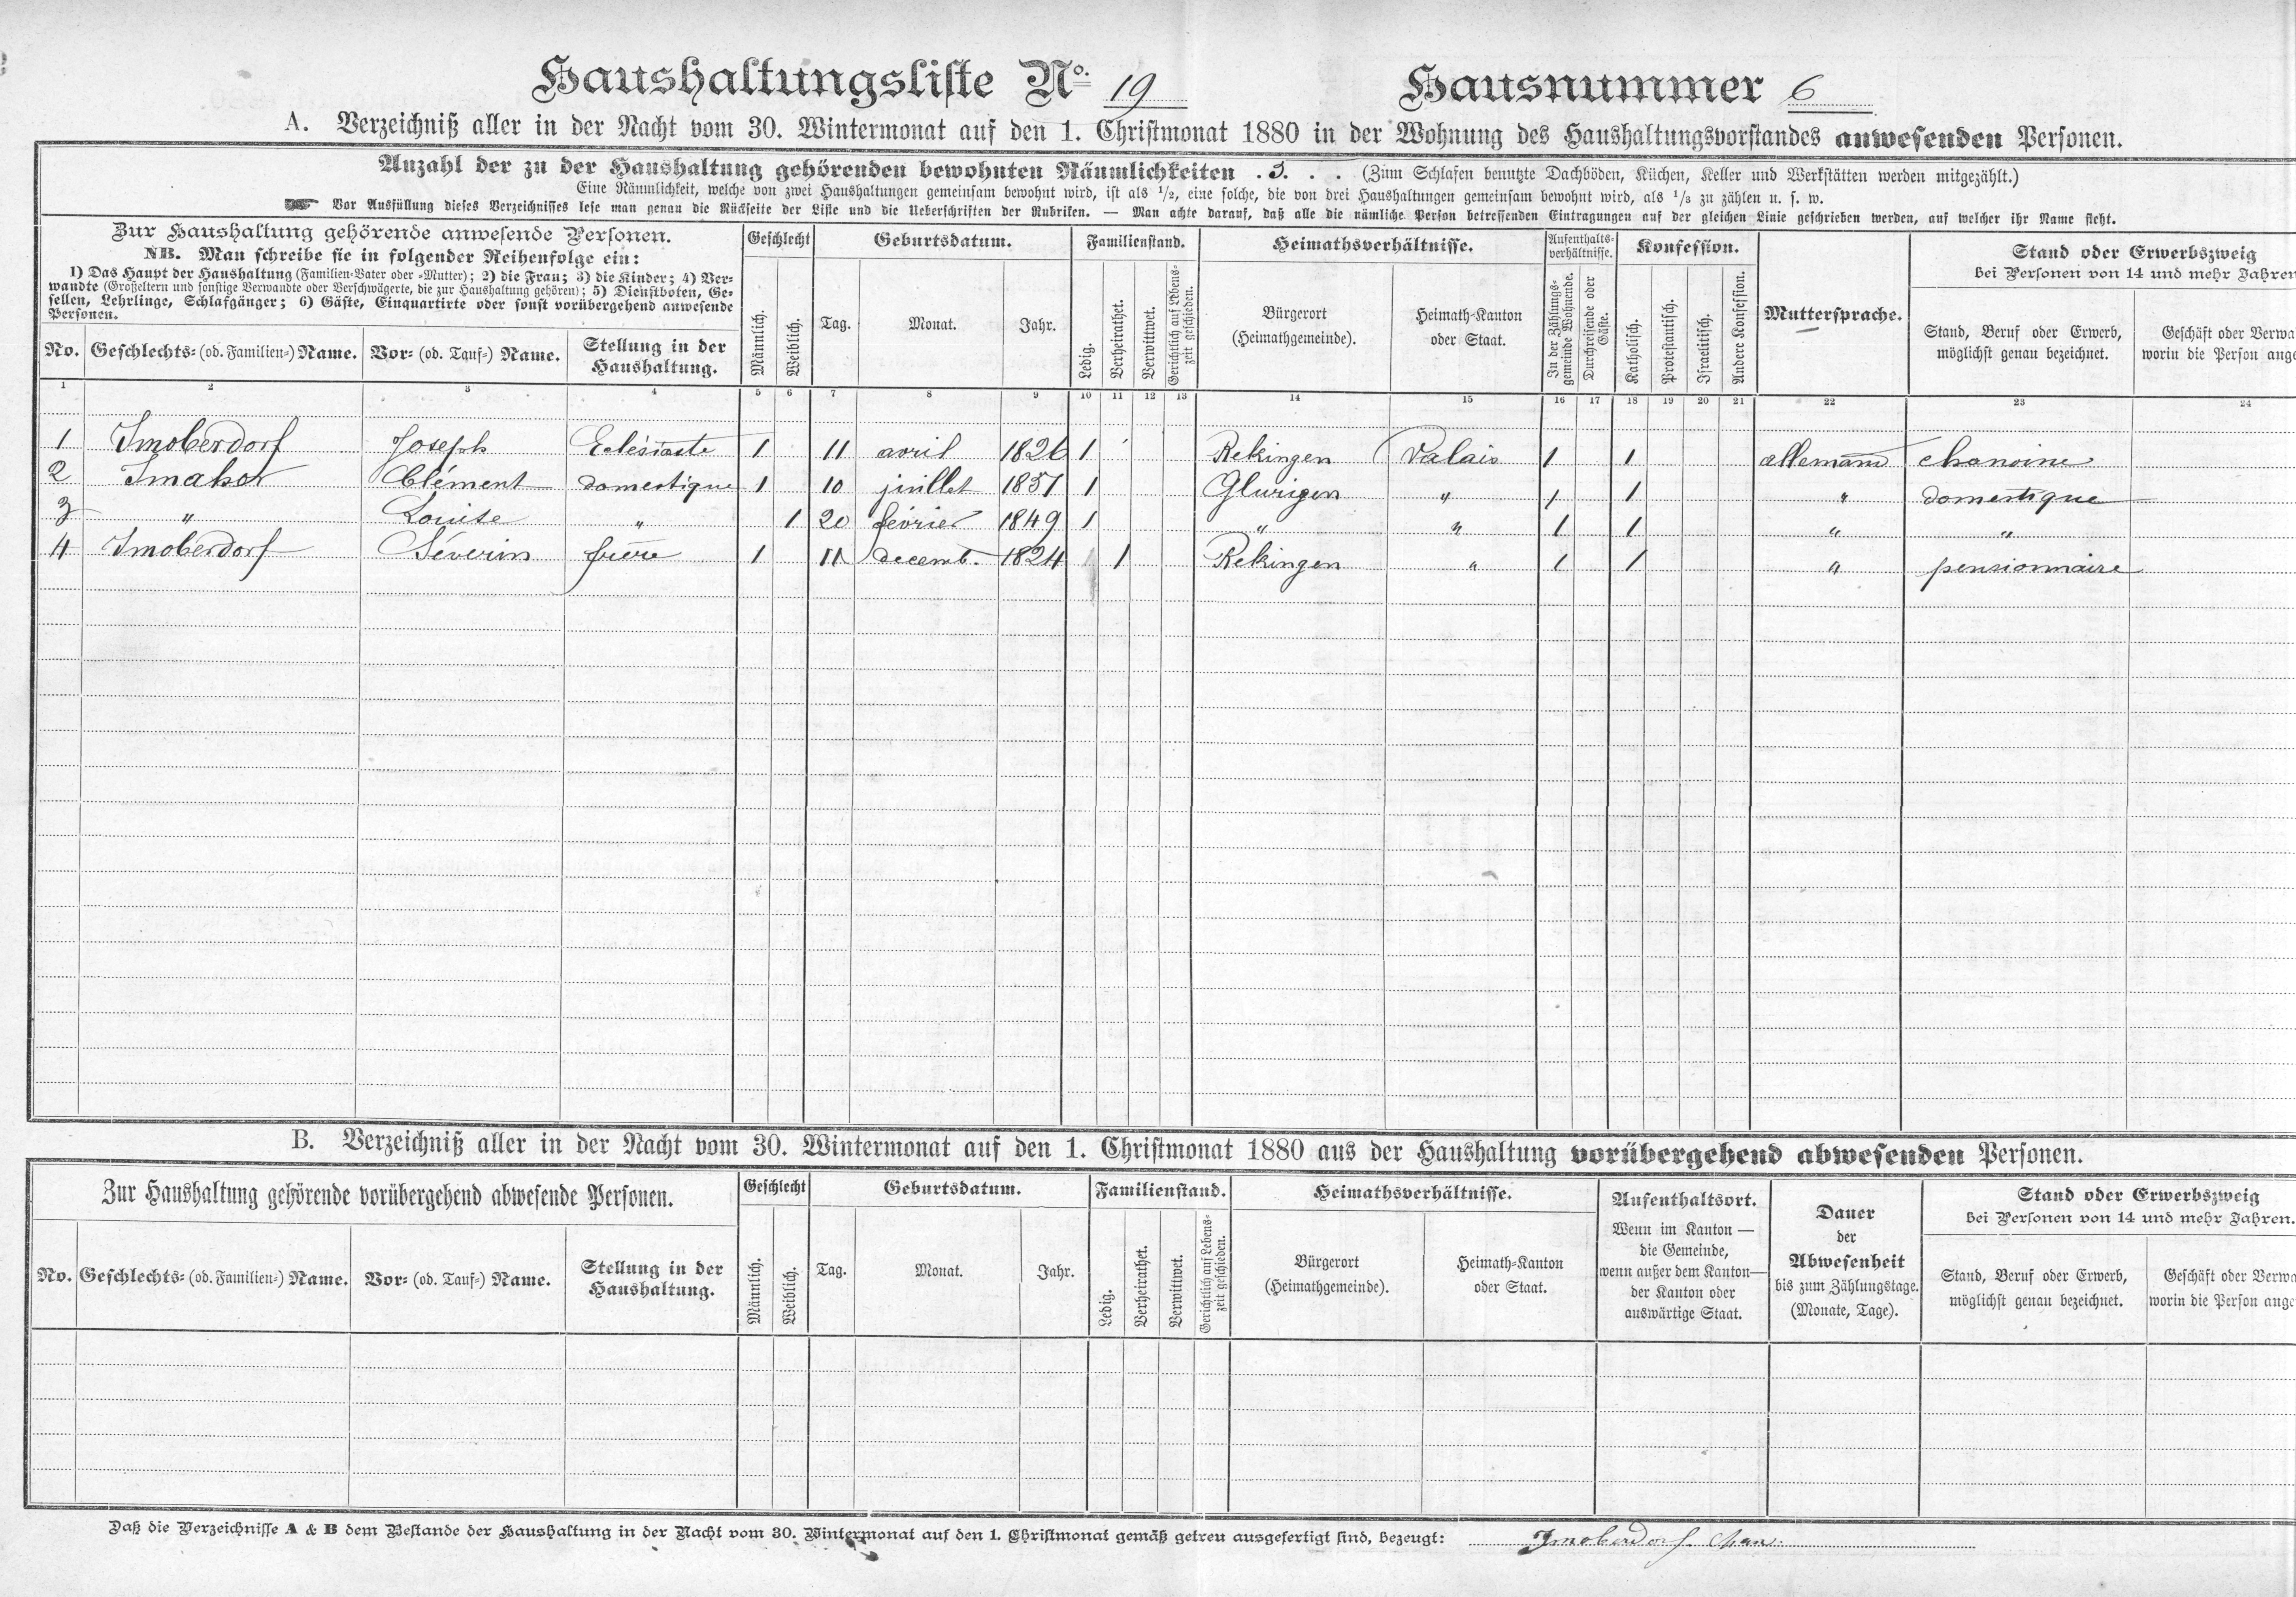 Haushaltungsliste No. 19 Hausnummer 6
A. Verzeichniß aller in der Nacht vom 30. Wintermonat auf den 1. Christmonat 1880 in der Wohnung des Haushaltungsvorstandes anwesenden Personen.
Anzahl der zu der Haushaltung gehörenden bewohnten Räumlichkeiten . 3. . . (Zum Schlafen benutzte Dachböden, Küchen, Keller und Werkstätten werden mitgezählt.)
Eine Räumlichkeit, welche von zwei Haushaltungen gemeinsam bewohnt wird, ist als 1/2, eine solche, die von drei Haushaltungen gemeinsam bewohnt wird, als 1/3 zu zählen u. s. w.
Vor Ausfüllung dieses Verzeichnisses lese man genau die Rückseite der Liste und die Ueberschriften der Rubriken. — Man achte darauf, daß alle die nämliche Person betreffenden Eintragungen auf der gleichen Linie geschrieben werden, auf welcher ihr Name steht.
Zur Haushaltung gehörende anwesende Personen.
NB. Man schreibe sie in folgender Reihenfolge ein:
1) Das Haupt der Haushaltung (Familien-Vater oder -Mutter); 2) die Frau; 3) die Kinder; 4) Ver-
wandte (Großeltern und sonstige Verwandte oder Verschwägerte, die zur Haushaltung gehören); 5) Dienstboten, Ge-
sellen, Lehrlinge, Schlafgänger; 6) Gäste, Einquartirte oder sonst vorübergehend anwesende
Personen.
No. Geschlechts- (od. Familien-) Name. Vor- (od. Tauf-) Name. Stellung in der
Haushaltung.
Geschlecht
Männlich. Weiblich.
Geburtsdatum.
Tag. Monat. Jahr.
Familienstand.
Ledig. Verheirathet. Verwittwet. Gerichtlich auf Lebens-
zeit geschieden.
Heimathsverhältnisse.
Bürgerort
(Heimathgemeinde).
Heimath-Kanton
oder Staat.
Aufenthalts-
verhältnisse.
In der Zählungs-
gemeinde Wohnende.
Durchreisende oder
Gäste.
Konfession.
Katholisch. Protestantisch. Israelitisch. Andere Konfession.
Muttersprache.
Stand oder Erwerbszweig
bei Personen von 14 und mehr Jahren
Stand, Beruf oder Erwerb,
möglichst genau bezeichnet.
Geschäft oder Verwa
worin die Person ange
1 2 3 4 5 6 7 8 9 10 11 12 13 14 15 16 17 18 19 20 21 22 23 24
1 Imoberdorf Joseph Eclésiaste 1 11 avril 1826 1 Rekingen Valais 1 1 allemand chanoine
2 Imahor Clément domestique 1 10 juillet 1857 1 Glurigen " 1 1 " domestique
3 " Louise " 1 20 février 1849 1 " " 1 1 " "
4 Imoberdorf Séverin frère 1 11 decemb. 1824 1 Rekingen " 1 1 " pensionnaire
B. Verzeichniß aller in der Nacht vom 30. Wintermonat auf den 1. Christmonat 1880 aus der Haushaltung vorübergehend abwesenden Personen.
Zur Haushaltung gehörende vorübergehend abwesende Personen.
No. Geschlechts- (od. Familien-) Name. Vor- (od. Tauf-) Name. Stellung in der
Haushaltung.
Geschlecht
Männlich. Weiblich.
Geburtsdatum.
Tag. Monat. Jahr.
Familienstand.
Ledig. Verheirathet. Verwittwet. Gerichtlich auf Lebens-
zeit geschieden.
Heimathsverhältnisse.
Bürgerort
(Heimathgemeinde).
Heimath-Kanton
oder Staat.
Aufenthaltsort.
Wenn im Kanton —
die Gemeinde,
wenn außer dem Kanton—
der Kanton oder
auswärtige Staat.
Dauer
der
Abwesenheit
bis zum Zählungstage.
(Monate, Tage).
Stand oder Erwerbszweig
bei Personen von 14 und mehr Jahren.
Stand, Beruf oder Erwerb,
möglichst genau bezeichnet.
Geschäft oder Verwa
worin die Person ange
Daß die Verzeichnisse A & B dem Bestande der Haushaltung in der Nacht vom 30. Wintermonat auf den 1. Christmonat gemäß getreu ausgefertigt sind, bezeugt: Imoberdorf. Chan: